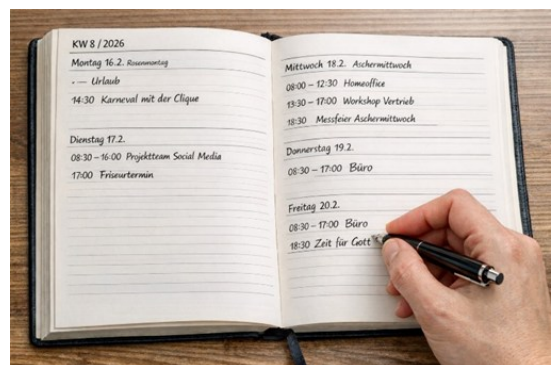 KW 8 / 2026
Montag 16.2. Rosenmontag
- — Urlaub
14:30 Karneval mit der Clique
Dienstag 17.2.
08:30 – 16:00 Projektteam Social Media
17:00 Friseurtermin
Mittwoch 18.2. Aschermittwoch
08:00 – 12:30 Homeoffice
13:30 – 17:00 Workshop Vertrieb
18:30 Messfeier Aschermittwoch
Donnerstag 19.2.
08:30 – 17:00 Büro
Freitag 20.2.
08:30 – 17:00 Büro
18:30 Zeit für Gott